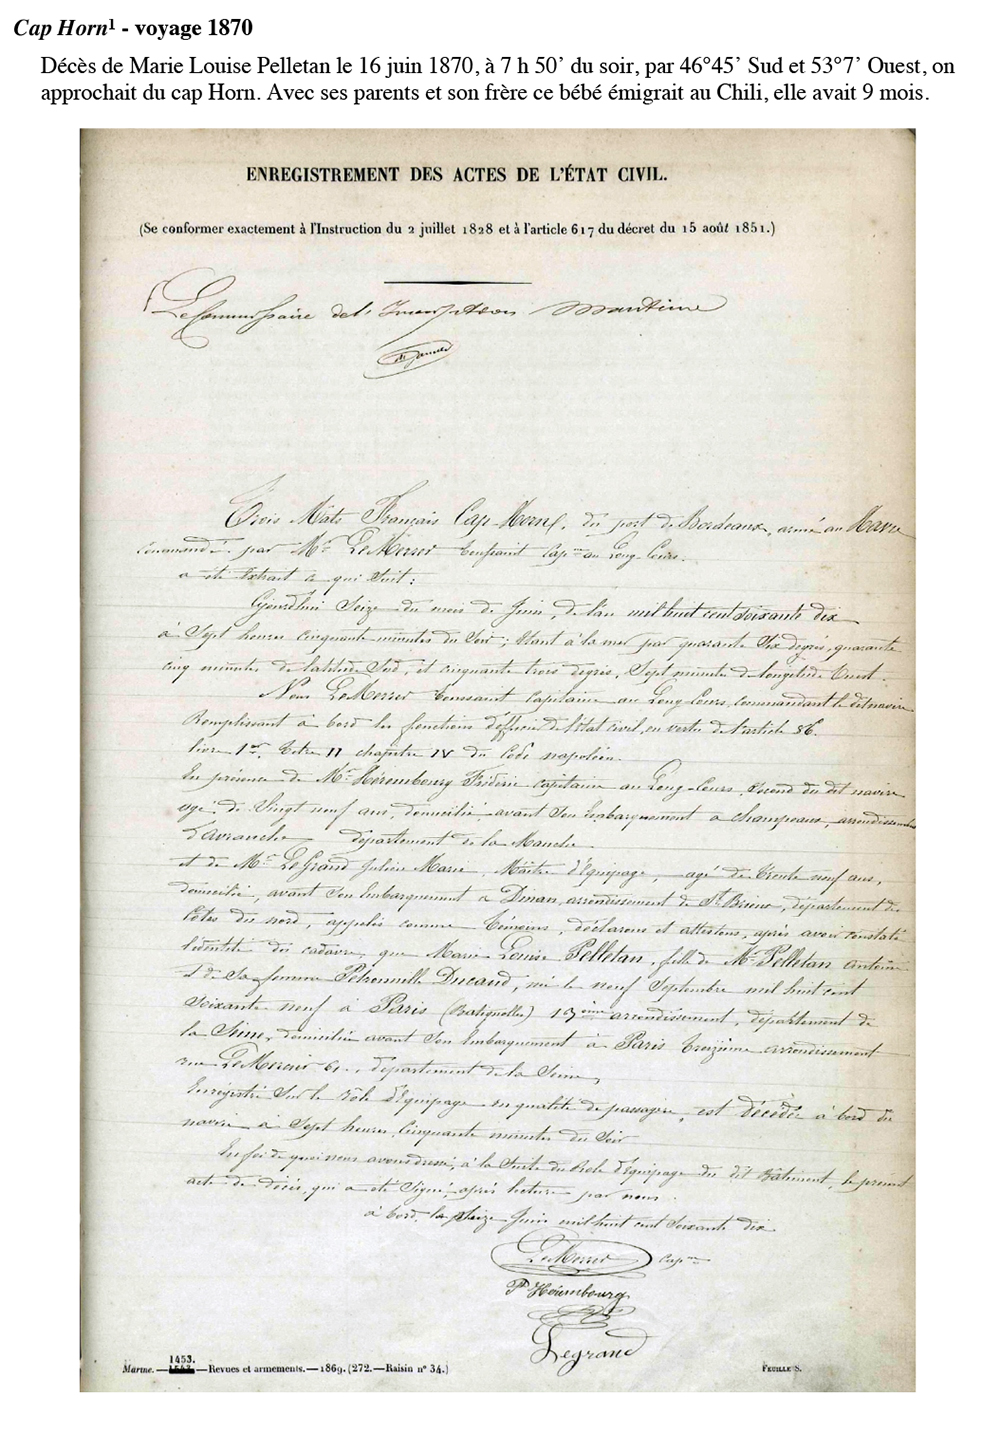 Cap Horn¹ - voyage 1870
Décès de Marie Louise Pelletan le 16 juin 1870, à 7 h 50’ du soir, par 46°45’ Sud et 53°7’ Ouest, on
approchait du cap Horn. Avec ses parents et son frère ce bébé émigrait au Chili, elle avait 9 mois.
ENREGISTREMENT DES ACTES DE L’ÉTAT CIVIL.
(Se conformer exactement à l’Instruction du 2 juillet 1828 et à l’article 617 du décret du 15 août 1851.)
Le Commissaire de l'Inscription Maritime
Trois Mâts Français Cap-Horn, du port de Bordeaux, armé au Havre
Commandé par Mr LeMerrer Toussaint Capne au Long-Cours.
a été Extrait ce qui Suit :
Ajourdhui Seize du mois de Juin, de l'an mil huit cent soixante dix
à Sept heures cinquante minutes du Soir ; Etant à la mer par quarante Six degrés, quarante
cinq minutes de latitude Sud, et cinquante trois degrés, Sept minute de longitude Ouest.
Nous LeMerrer Toussaint Capitaine au Long-Cours, commandant le dit navire
Remplissant à bord les fonctions d'officier de l'Etat civil, en vertu de l'article 86.
livre 1er, titre II chapitre IV du Code napoléon.
En présence de Mr Hérembourg Frédéric capitaine au Long-Cours, Second du dit navire
agé de Vingt neuf ans, domicilié avant Son Embarquement à Champeaux, arrondissement
d'Avranche département de la Manche
et de Mr LeGrand Julien Marie, Maître d'Equipage, agé de trente neuf ans,
domicilié, avant Son Embarquement à Dinan, arrondissement de St Brieuc, département des
Côtes du nord, appelés comme témoins, déclarons et attestons, après avoir constaté
l'identité du cadavre, que Marie Louise Pelletan, fille de Mr Pelletan Antoine
et de Sa femme Pétronille Ducaud, née le neuf Septembre mil huit cent
Soixante neuf à Paris (Batignolles) arrondissement, département de
la Seine, domiciliée avant Son Embarquement à Paris treizième arrondissement
rue 61, département de la Seine,
Enregistré Sur le rôle d'Equipage en qualité de passagère, est décédée à bord du
navire à Sept heures Cinquante minutes du Soir
En foi de quoi nous avons dressé, à la Suite du Role d'Equipage du dit Bâtiment, le présent
acte de décès, qui a été Signé, après lecture par nous.
à bord, le Seize Juin mil huit cent Soixante dix
LeMerrer Capne
F Hérembourg
Legrand
1453.
Marine. — — Revues et armements. — 1869. (272. — Raisin n° 34.)
FEUILLES.